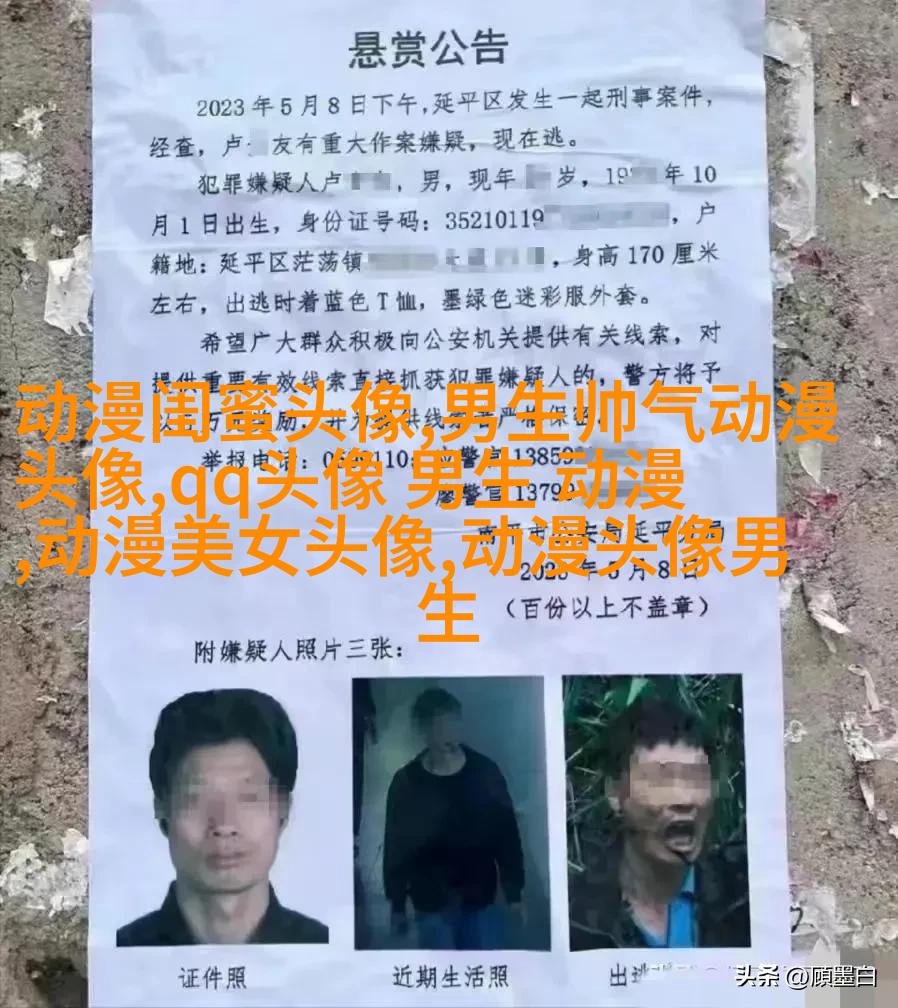 悬赏公告
2023年5月8日下午，延平区发生一起刑事案件，
经查，卢 友有重大作案嫌疑，现在逃。
犯罪嫌疑人卢 ，男，现年 岁，19 年10
月1日出生，身份证号码：35210119 ，户
籍地：延平区茫荡镇 ，身高170厘米
左右，出逃时着蓝色T恤，墨绿色迷彩服外套。
希望广大群众积极向公安机关提供有关线索，对
提供重要有效线索直接抓获犯罪嫌疑人的，警方将予
动漫闺蜜头像,男生帅气动漫
头像,qq头像 男生 动漫
,动漫美女头像,动漫头像男
生
举报电话： 警官1385
廖警官1379
2023年5月8日
（百份以上不盖章）
附嫌疑人照片三张：
证件照
近期生活照
出逃
头条 @顾墨白